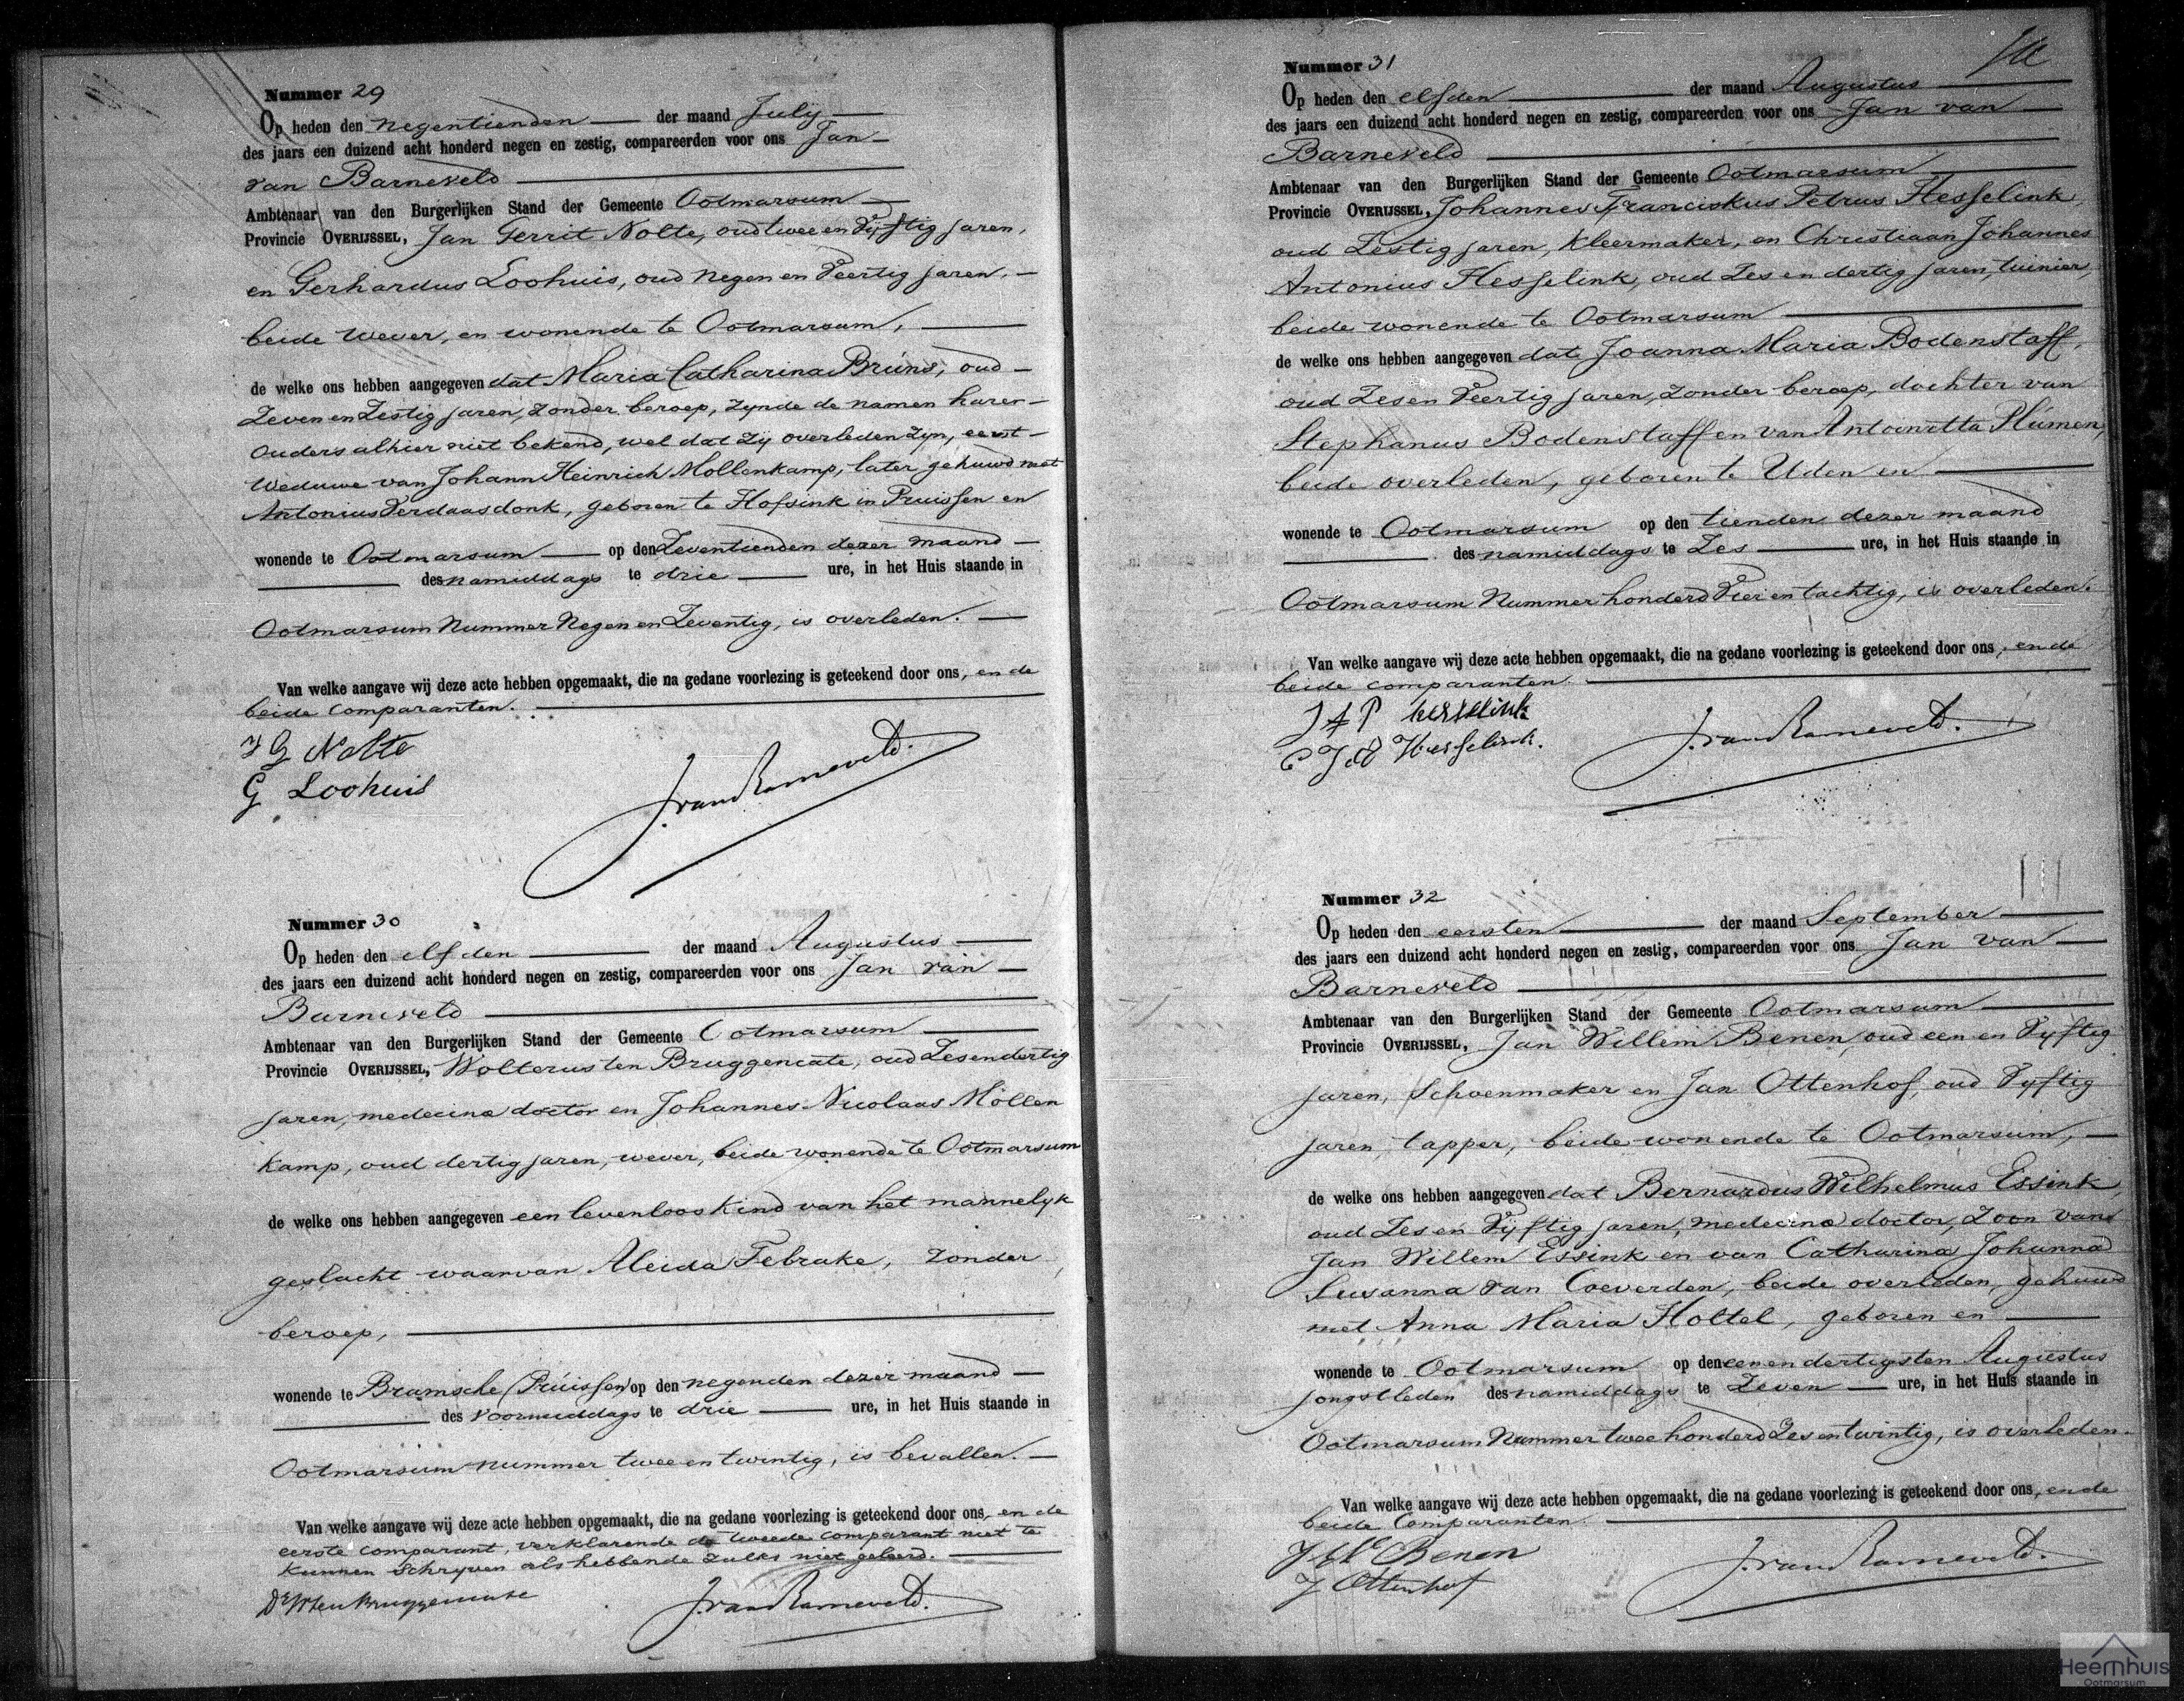 Nummer 29
Op heden den negentienden der maand July
des jaars een duizend acht honderd negen en zestig, compareerden voor ons Jan
van Barneveld
Ambtenaar van den Burgerlijken Stand der Gemeente Ootmarsum
Provincie OVERIJSSEL, Jan Gerrit Nolte, oud twee en Vyftig jaren,
en Gerhardus Loohuis, oud negen en Veertig jaren,
beide wever, en wonende te Ootmarsum,
de welke ons hebben aangegeven dat Maria Catharina Brúns, oud
Zeven en Zestig jaren, zonder beroep, zynde de namen harer
ouders alhier niet bekend, wel dat Zij overleden Zyn, eerst
Weduwe van Johann Heinrich Mollenkamp, later gehuwd met
Antonius Verdaasdonk, geboren te Hofsink in Pruissen en
wonende te Ootmarsum op den Zeventienden dezer maand
des namiddags te drie ure, in het Huis staande in
Ootmarsum Nummer Negen en Zeventig, is overleden.
Van welke aangave wij deze acte hebben opgemaakt, die na gedane voorlezing is geteekend door ons, en de
beide comparanten.
J G Nolte
G Loohuis
J. van Barneveld.
Nummer 30
Op heden den elfden der maand Augustus
des jaars een duizend acht honderd negen en zestig, compareerden voor ons Jan van
Barneveld
Ambtenaar van den Burgerlijken Stand der Gemeente Ootmarsum
Provincie OVERIJSSEL, Wolterus ten Bruggencate, oud Zesendertig
jaren, medecina doctor en Johannes Nicolaas Möllen
kamp, oud dertig jaren, wever, beide wonende te Ootmarsum
de welke ons hebben aangegeven een levenloos Kind van het mannelyk
geslacht waarvan Aleida Tebrake, zonder
beroep,
wonende te Bramsche (Prúissen) op den negenden dezer maand
des voormiddags te drie ure, in het Huis staande in
Ootmarsum nummer twee en twintig, is bevallen.
Van welke aangave wij deze acte hebben opgemaakt, die na gedane voorlezing is geteekend door ons, en de
eerste comparant, verklarende de tweede comparant niet te
kunnen Schryven als hebbende zulks niet geleerd.
Dr W ten Bruggencate
J. van Barneveld.
Nummer 31
Op heden den elfden der maand Augustus
des jaars een duizend acht honderd negen en zestig, compareerden voor ons Jan van
Barneveld
Ambtenaar van den Burgerlijken Stand der Gemeente Ootmarsum
Provincie OVERIJSSEL, Johannes Franciskus Petrus Hesselink,
oud Zestig jaren, Kleermaker, en Christiaan Johannes
Antonius Hesselink, oud Zes en dertig jaren, tuinier,
beide wonende te Ootmarsum
de welke ons hebben aangegeven dat Joanna Maria Bodenstaff,
oud Zes en Veertig jaren, zonder beroep, dochter van
Stephanus Bodenstaff en van Antoinetta Plúmen,
beide overleden, geboren te Uden en
wonende te Ootmarsum op den tienden dezer maand
des namiddags te Zes ure, in het Huis staande in
Ootmarsum Nummer honderd Vier en tachtig, is overleden.
Van welke aangave wij deze acte hebben opgemaakt, die na gedane voorlezing is geteekend door ons, en de
beide comparanten.
J F P Hesselink
C J A Hesselink.
J. van Barneveld.
Nummer 32
Op heden den eersten der maand September
des jaars een duizend acht honderd negen en zestig, compareerden voor ons Jan van
Barneveld
Ambtenaar van den Burgerlijken Stand der Gemeente Ootmarsum
Provincie OVERIJSSEL, Jan Willem Benen, oud een en Vyftig
jaren, Schoenmaker en Jan Ottenhof, oud Vyftig
jaren, tapper, beide wonende te Ootmarsum,
de welke ons hebben aangegeven dat Bernardus Wilhelmus Essink,
oud Zes en Vyftig jaren, medecina doctor, Zoon van
Jan Willem Essink en van Catharina Johanna
Susanna van Coeverden, beide overleden, gehuwd
met Anna Maria Holtel, geboren en
wonende te Ootmarsum op den een en dertigsten Augustus
jongstleden des namiddags te Zeven ure, in het Huis staande in
Ootmarsum Nummer twee honderd Zes en twintig, is overleden.
Van welke aangave wij deze acte hebben opgemaakt, die na gedane voorlezing is geteekend door ons, en de
beide Comparanten.
J W Benen
J Ottenhof
J. van Barneveld.
Heemhuis
Ootmarsum